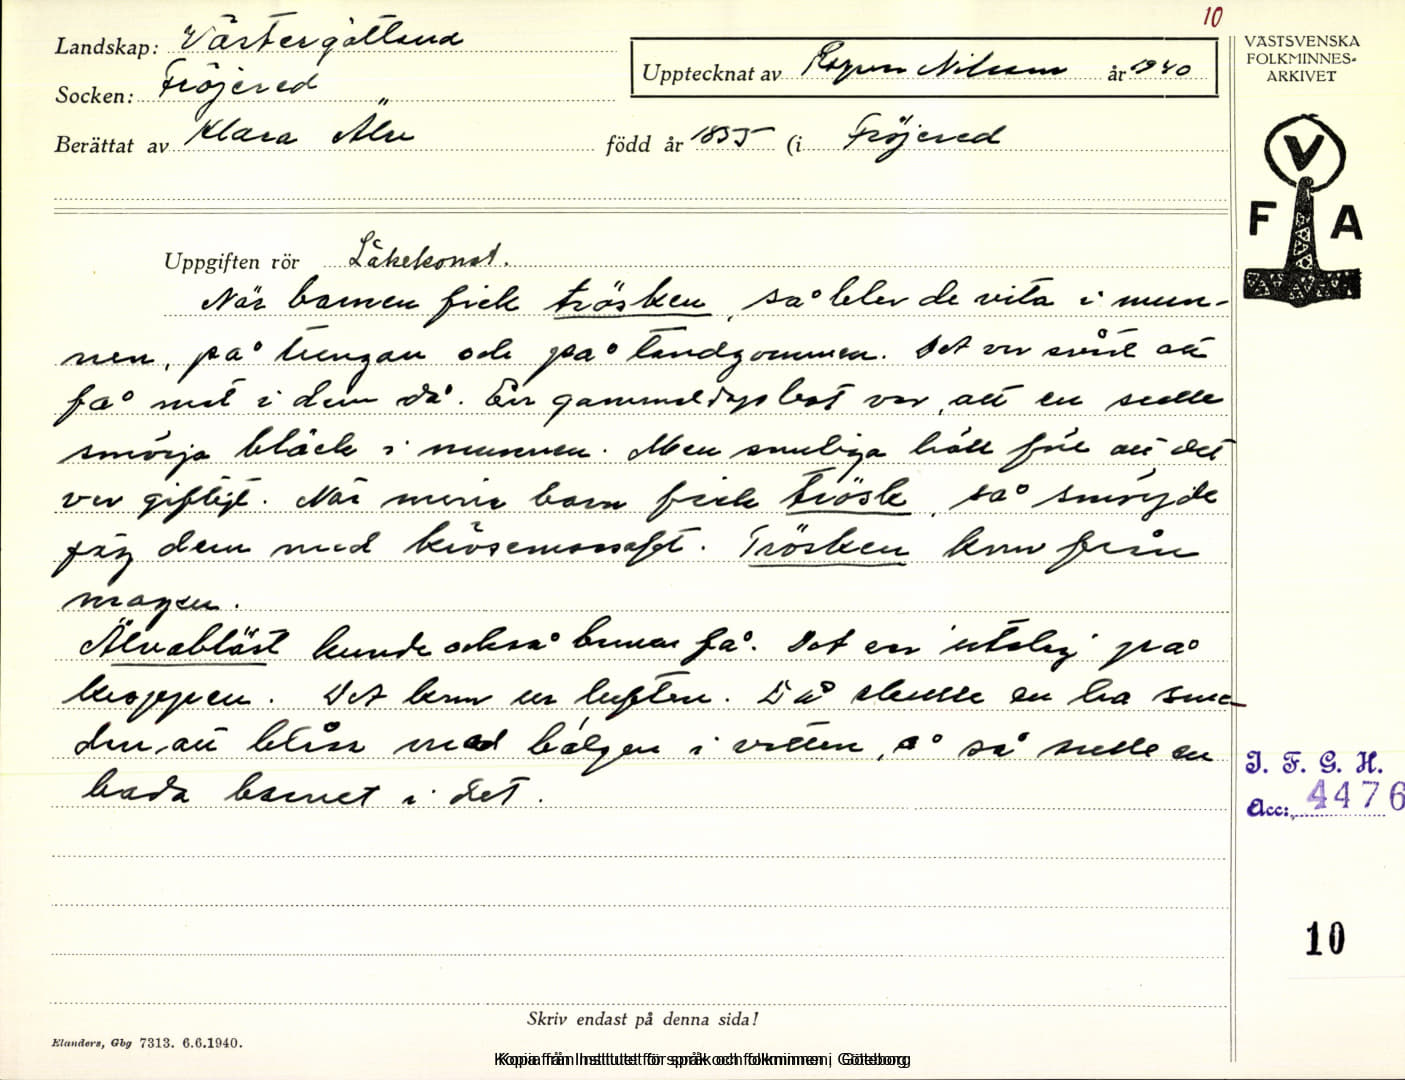 10
Landskap: Västergötland
Upptecknat av Ragnar Nilsson år 1940
VÄSTSVENSKA
FOLKMINNES-
ARKIVET
Socken: Fröjered
Berättat av Klara Älv född år 1855 (i Fröjered
V
F A
Uppgiften rör Läkekonst.
När barnen fick trösken, så blev de vita i mun-
nen, på tungan och på tandgommen. Det var svårt att
få mat i dem då. En gammeldags bot var, att en skulle
smörja bläck i munnen. Men somliga höll för att det
var giftigt. När mina barn fick trösk, så smörjde
jag dem med krösemossaft. Trösken kom från
magen.
Älvablåst kunde också barnen få. Det var utslag på
kroppen. Det kom ur luften. Då skulle en ha sme-
den att blåsa med bälgen i vatten, å så skulle en
bada barnet i det.
I. F. G. H.
Acc: 4476
10
Skriv endast på denna sida!
Elanders, Gbg 7313. 6.6.1940.
Kopia från Institutet för språk och folkminnen i Göteborg